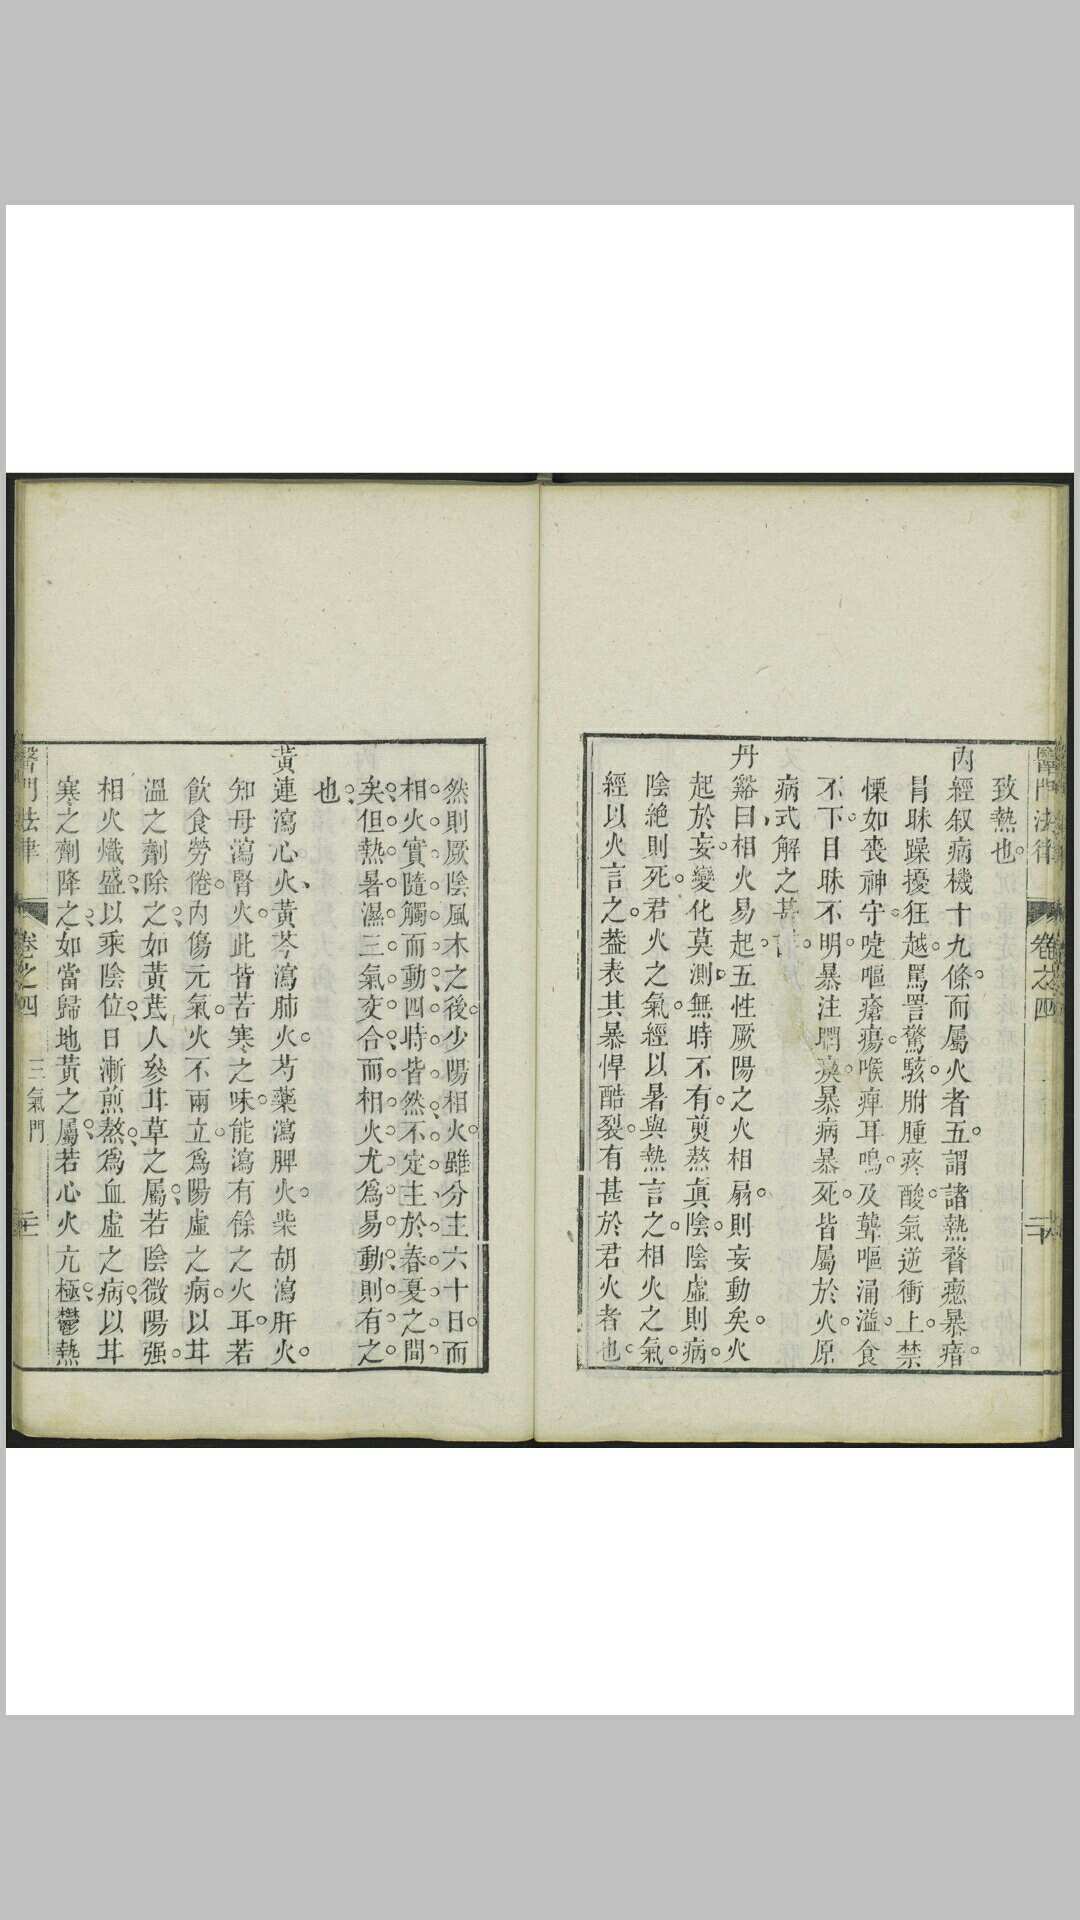 醫門法律
卷之四
致熱也
內經叙病機十九條而屬火者五謂諸熱瞀瘛暴瘖
冐昧躁擾狂越罵詈驚駭胕腫疼酸氣逆衝上禁
慄如喪神守嚏嘔瘡瘍喉痺耳鳴及聾嘔涌溢食
不下目昧不明暴注瞤瘈暴病暴死皆屬於火原
病式解之甚
丹谿曰相火易起五性厥陽之火相扇則妄動矣火
起於妄變化莫測無時不有煎熬眞陰陰虛則病
陰絕則死君火之氣經以暑與熱言之相火之氣
經以火言之葢表其暴悍酷裂有甚於君火者也
然則厥陰風木之後少陽相火雖分主六十日而
相火實隨觸而動四時皆然不定主於春夏之間
矣但熱暑濕三氣交合而相火尤爲易動則有之
也
黃連瀉心火黃芩瀉肺火芍藥瀉脾火柴胡瀉肝火
知母瀉腎火此皆苦寒之味能瀉有餘之火耳若
飲食勞倦內傷元氣火不兩立爲陽虛之病以甘
溫之劑除之如黃茋人參甘草之屬若陰微陽强
相火熾盛以乘陰位日漸煎熬爲血虛之病以甘
寒之劑降之如當歸地黃之屬若心火亢極鬱熱
醫門法律
卷之四
三氣門